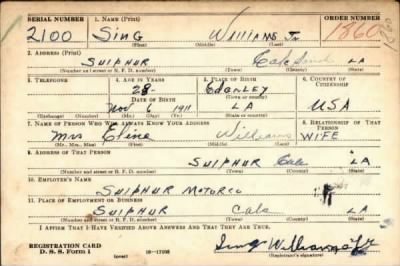 SERIAL NUMBER 1. NAME (Print) ORDER NUMBER
2100 SING WILLIAMS Jr 1860
(First) (Middle) (Last)
2. ADDRESS (Print)
SULPHUR LA
(Number and street or R. F. D. number) (Town) (County) (State)
3. TELEPHONE 4. AGE IN YEARS 5. PLACE OF BIRTH 6. COUNTRY OF CITIZENSHIP
28
DATE OF BIRTH
Nov 6 1911 LA USA
(Exchange) (No.) (Mo.) (Day) (Yr.) (State or country)
7. NAME OF PERSON WHO WILL ALWAYS KNOW YOUR ADDRESS 8. RELATIONSHIP OF THAT PERSON
Mrs Williams WIFE
(Mr., Mrs., Miss) (First) (Middle) (Last)
9. ADDRESS OF THAT PERSON
SULPHUR Cal LA
(Number and street or R. F. D. number) (Town) (County) (State)
10. EMPLOYER'S NAME
SULPHUR MOTOR CO
11. PLACE OF EMPLOYMENT OR BUSINESS
SULPHUR Cal LA
(Number and street or R. F. D. number) (Town) (County) (State)
I AFFIRM THAT I HAVE VERIFIED ABOVE ANSWERS AND THAT THEY ARE TRUE.
REGISTRATION CARD
D. S. S. Form 1 Sing Williams Jr
(Registrant's signature)